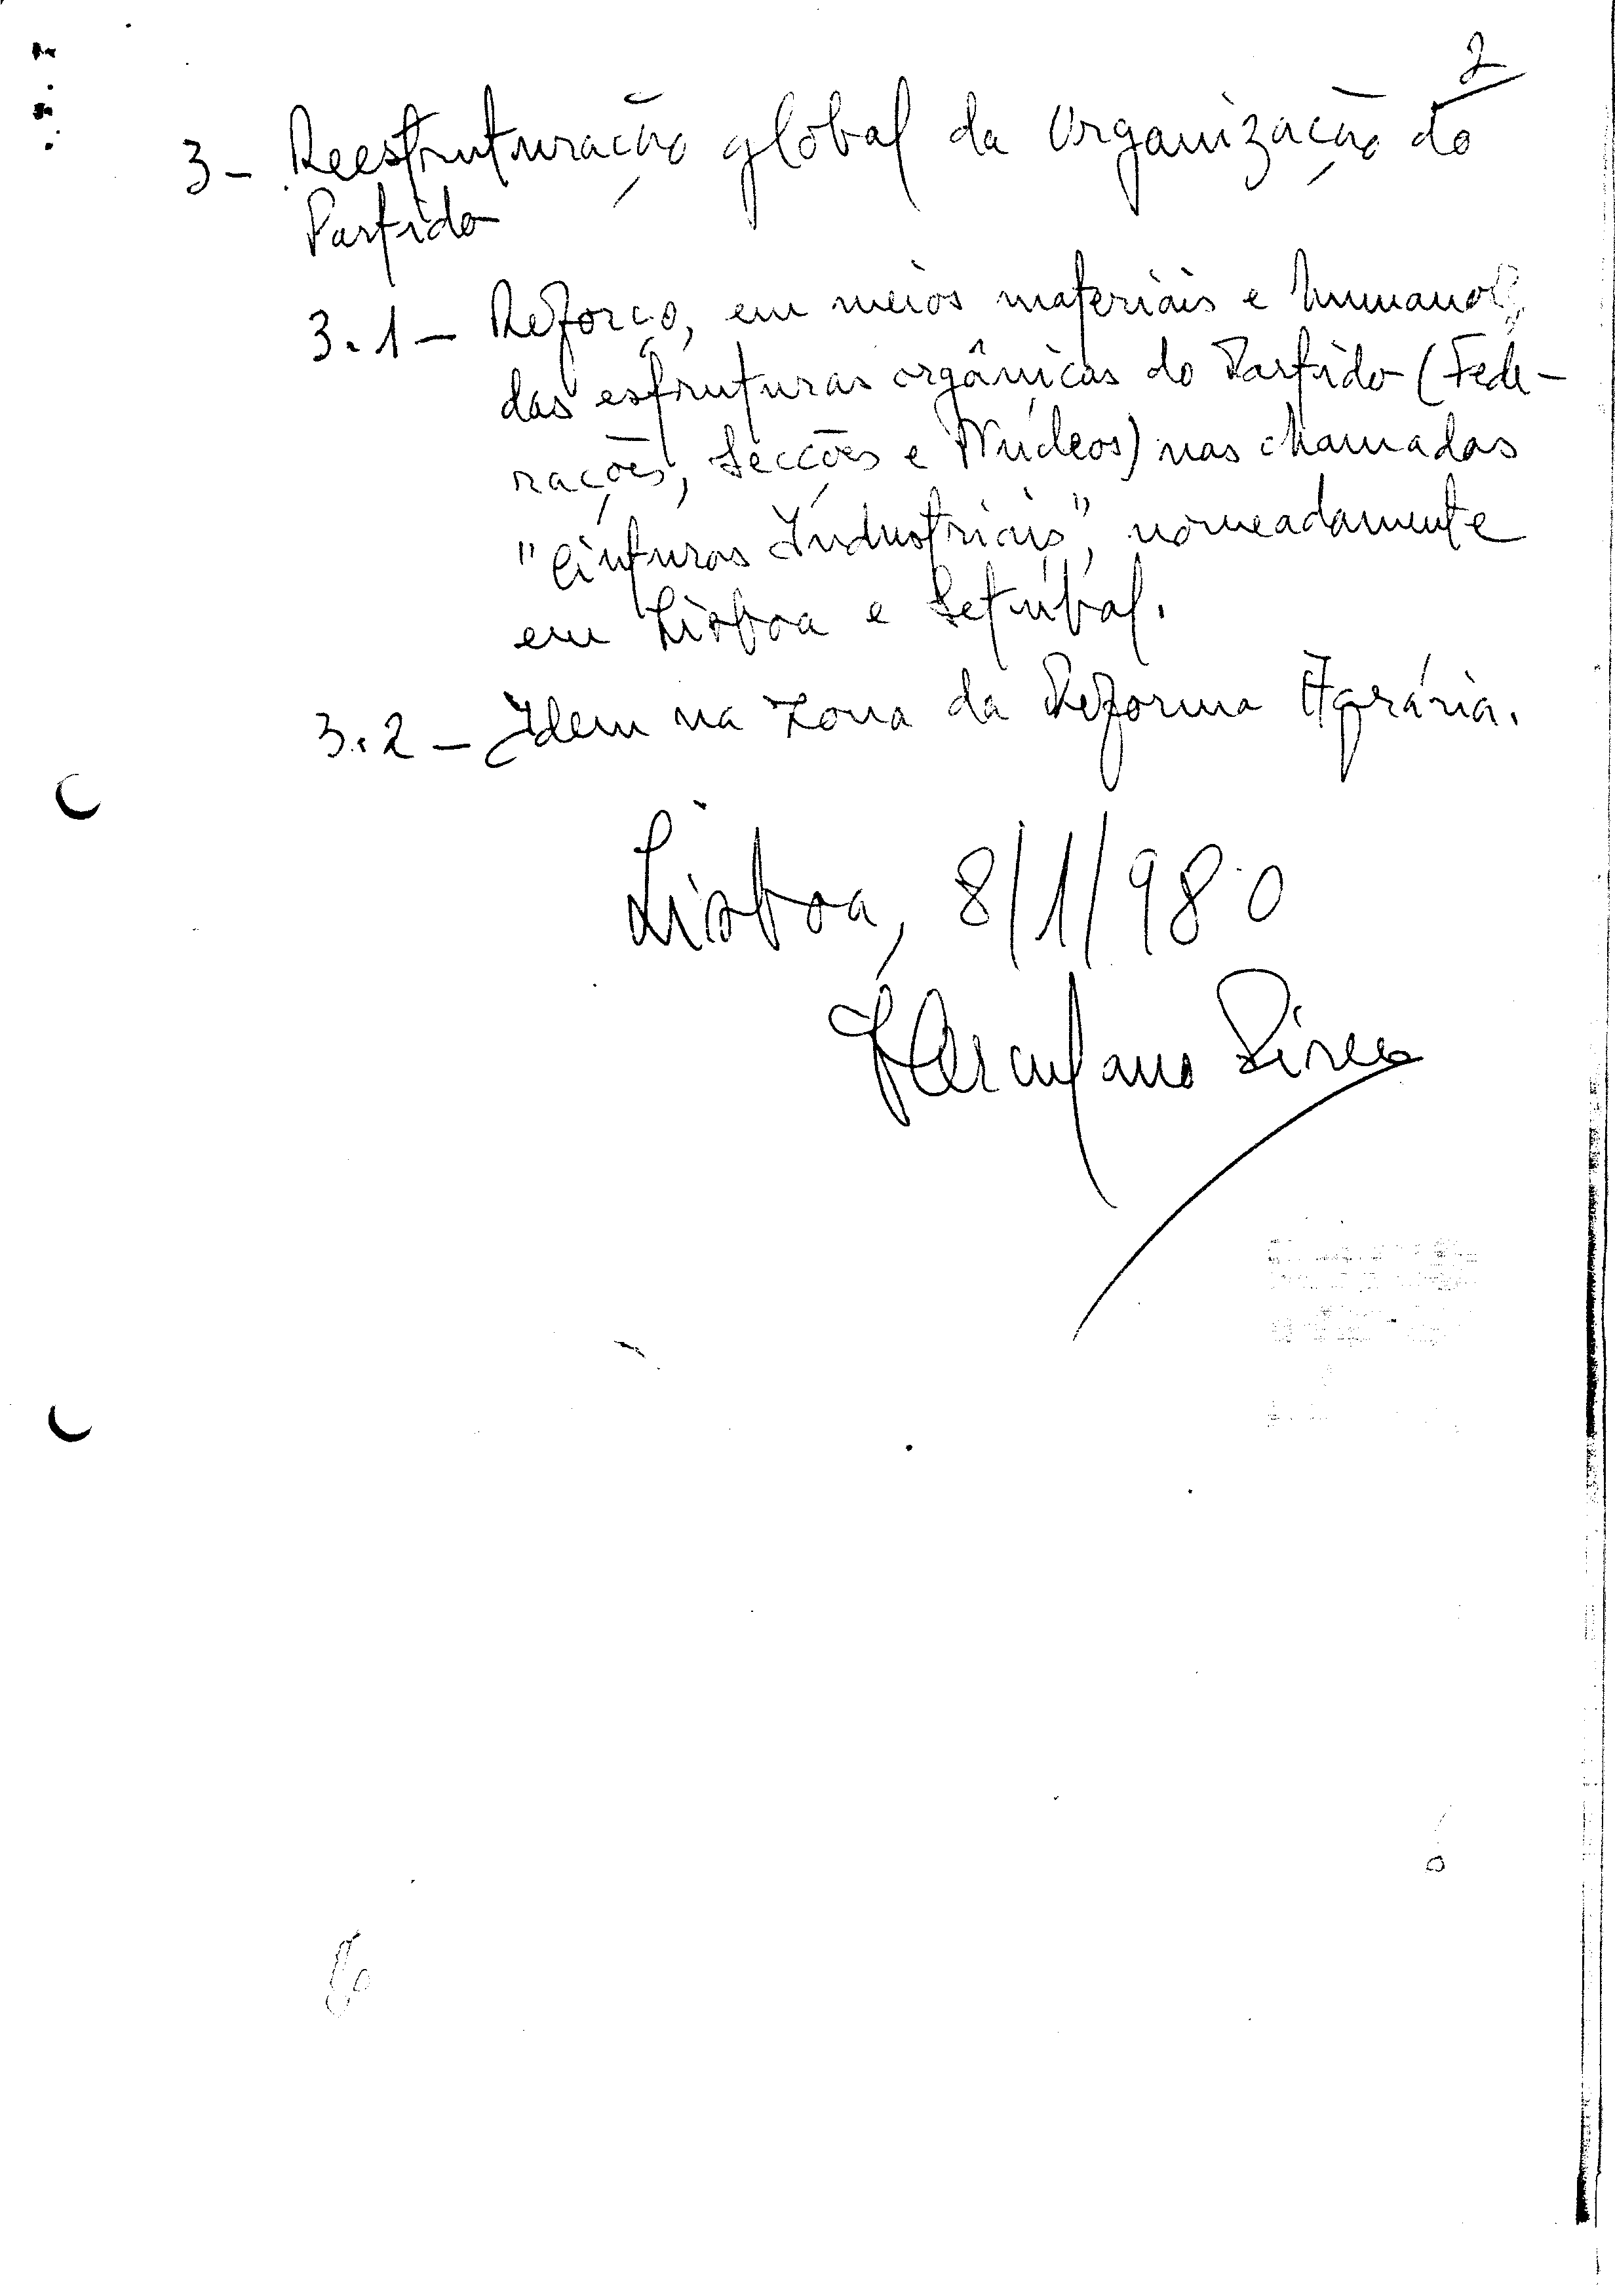 2
3- Reestruturação global da Organização do
Partido
3.1- Reforço, em meios materiais e humanos,
das estruturas orgânicas do Partido (Fede-
rações, Secções e Núcleos) nas chamadas
"Cinturas Industriais", nomeadamente
em Lisboa e Setúbal.
3.2- Idem na Zona da Reforma Agrária.
Lisboa, 8/1/980
Herculano Pires